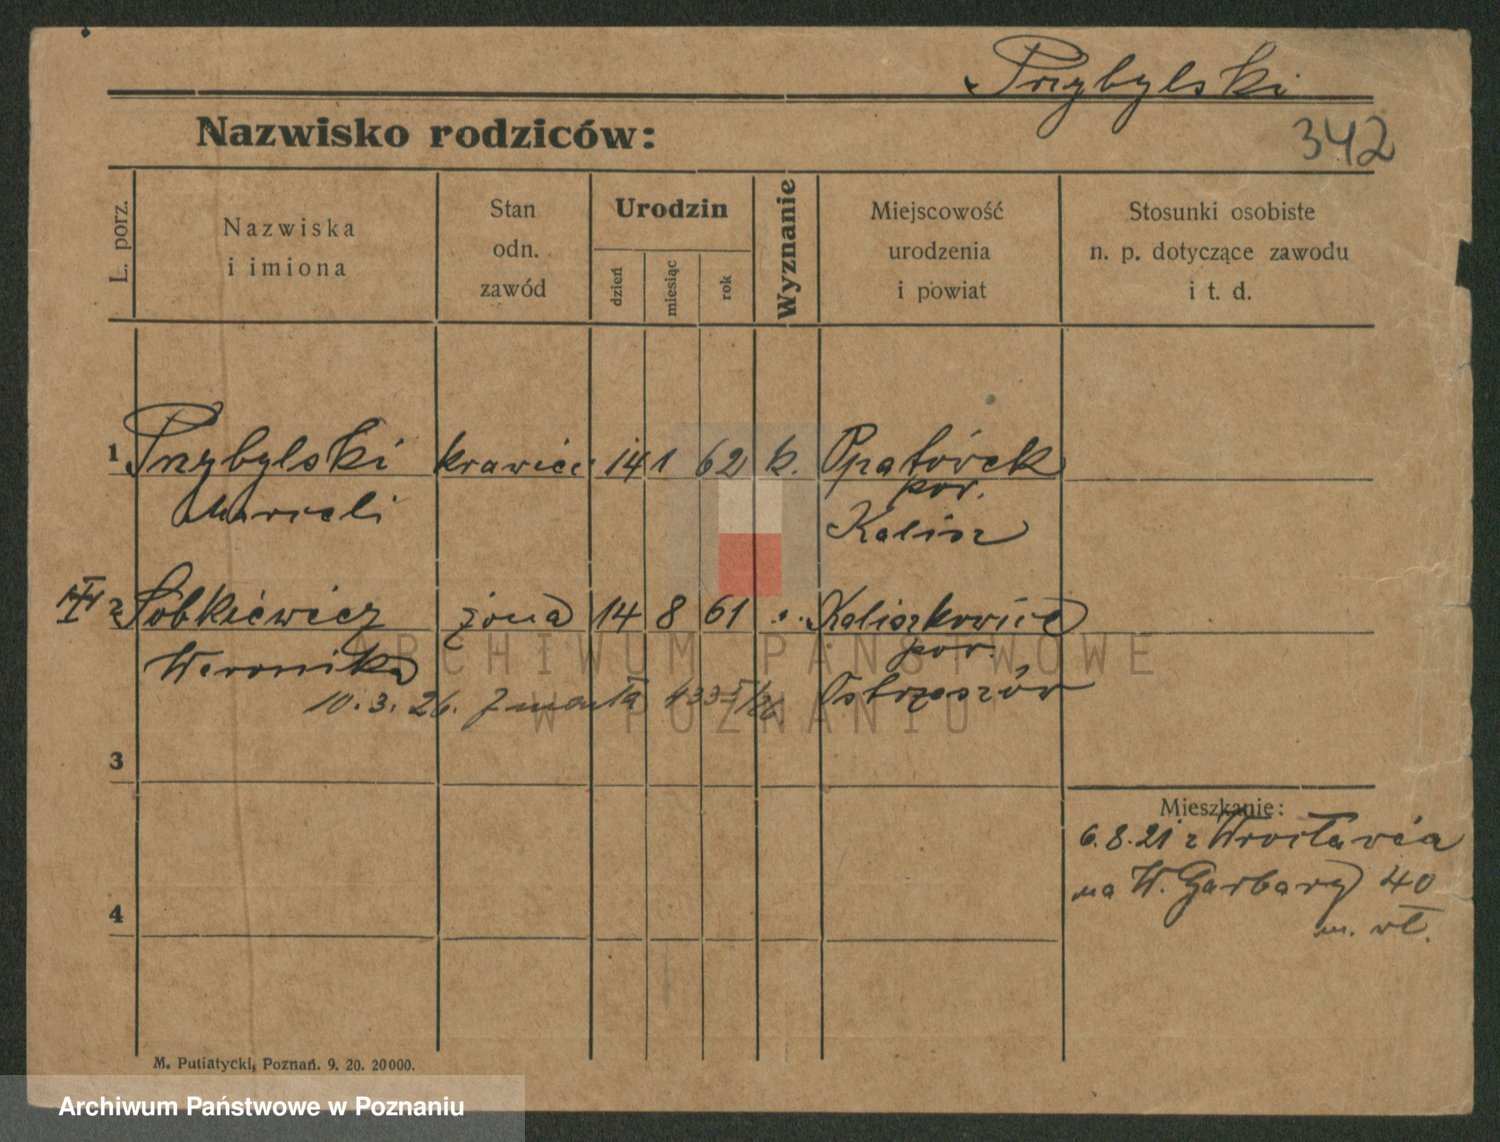 Przybylski
Nazwisko rodziców:
342
L. porz.
Nazwiska
i imiona
Stan
odn.
zawód
Urodzin
dzień
miesiąc
rok
Wyznanie
Miejscowość
urodzenia
i powiat
Stosunki osobiste
n. p. dotyczące zawodu
i t. d.
1 Przybylski krawiec 14 1 62 k. Opatówek
Marceli pow.
Kalisz
2 Sobkiewicz żona 14 8 61 Kaliszkowice
Weronika pow.
10.3.26. zmarła Ostrzeszów
3
Mieszkanie:
6.8.21 z Wrocławia
na W. Garbary 40
m. wł.
4
M. Putiatycki, Poznań. 9. 20. 20000.
ARCHIWUM PAŃSTWOWE
W POZNANIU
Archiwum Państwowe w Poznaniu